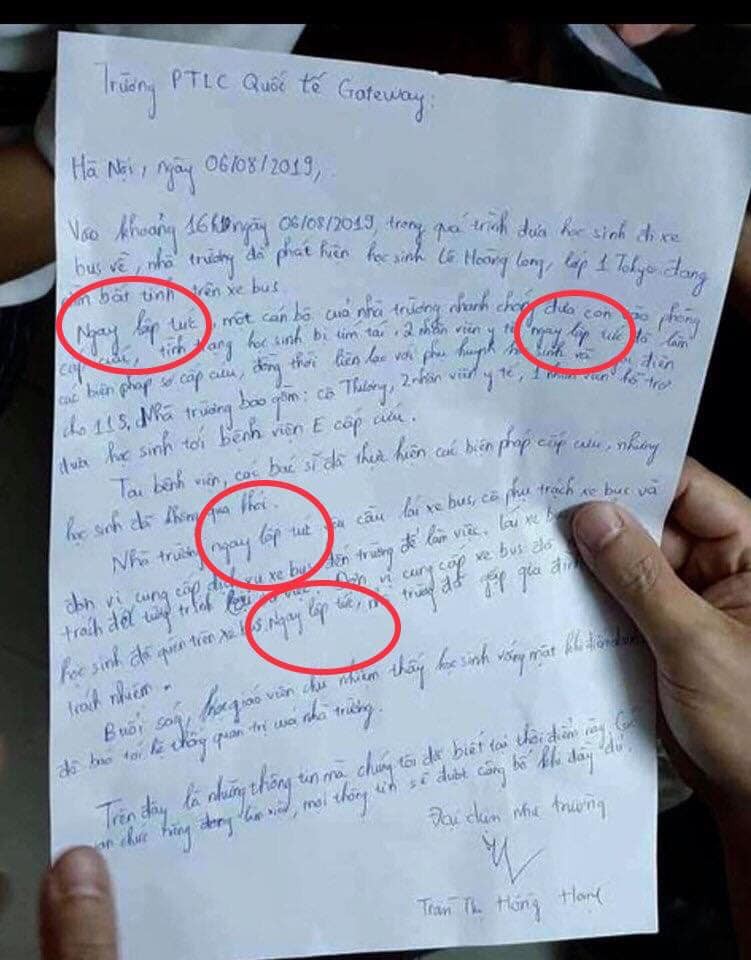 Trường PTLC Quốc tế Gateway:
Hà Nội, ngày 06/08/2019,
Vào khoảng 16h ngày 06/08/2019, trong quá trình đưa học sinh đi xe
bus về, nhà trường đã phát hiện học sinh Lê Hoàng Long, lớp 1 Tokyo đang
nằm bất tỉnh trên xe bus
Ngay lập tức, một cán bộ của nhà trường nhanh chóng đưa con vào phòng
cấp cứu, tình trạng học sinh bị tím tái, 2 nhân viên y tế ngay lập tức đã làm
các biện pháp sơ cấp cứu, đồng thời liên lạc với phụ huynh học sinh và điện
cho 115. Nhà trường bao gồm: cô Thương, 2 nhân viên y tế, 1 nhân viên hỗ trợ
đưa học sinh tới bệnh viện E cấp cứu.
Tại bệnh viện, các bác sĩ đã thực hiện các biện pháp cấp cứu, nhưng
học sinh đã không qua khỏi.
Nhà trường ngay lập tức yêu cầu lái xe bus, cô phụ trách xe bus và
đơn vị cung cấp dịch vụ xe bus đến trường để làm việc. lái xe
trách để tường trình Đơn vị cung cấp xe bus đã
học sinh đã quên trên xe bus. Ngay lập tức, nhà trường đã gặp gia đình
trách nhiệm.
Buổi sáng, giáo viên chủ nhiệm thấy học sinh vắng mặt khi điểm danh
đã báo tới hệ thống quản trị của nhà trường.
Trên đây là những thông tin mà chúng tôi đã biết tại thời điểm này. Các
chức năng đang làm việc, mọi thông tin sẽ được công bố khi đầy đủ.
Đại diện nhà trường
Trần Thị Hồng Hạnh